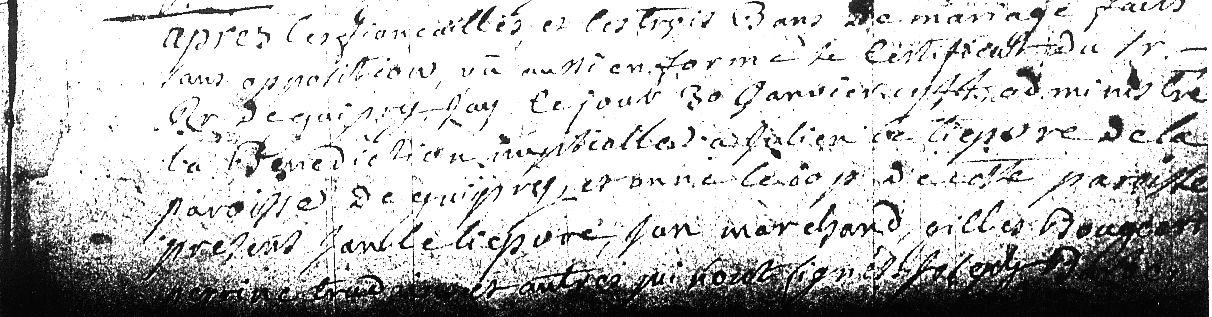 apres les fiancailles et les trois Bans de mariage faits
sans opposition, vû aussi en forme le Certificat du Sr.
Rr De guipry j'ay ce jour 30 Janvier administre
la Benediction nuptialle a Julien le liepvre de la
paroisse De guipry, et anne le de cette paroisse
present jan le liepvre, jan marchand, gilles
perrine et autres qui font signés